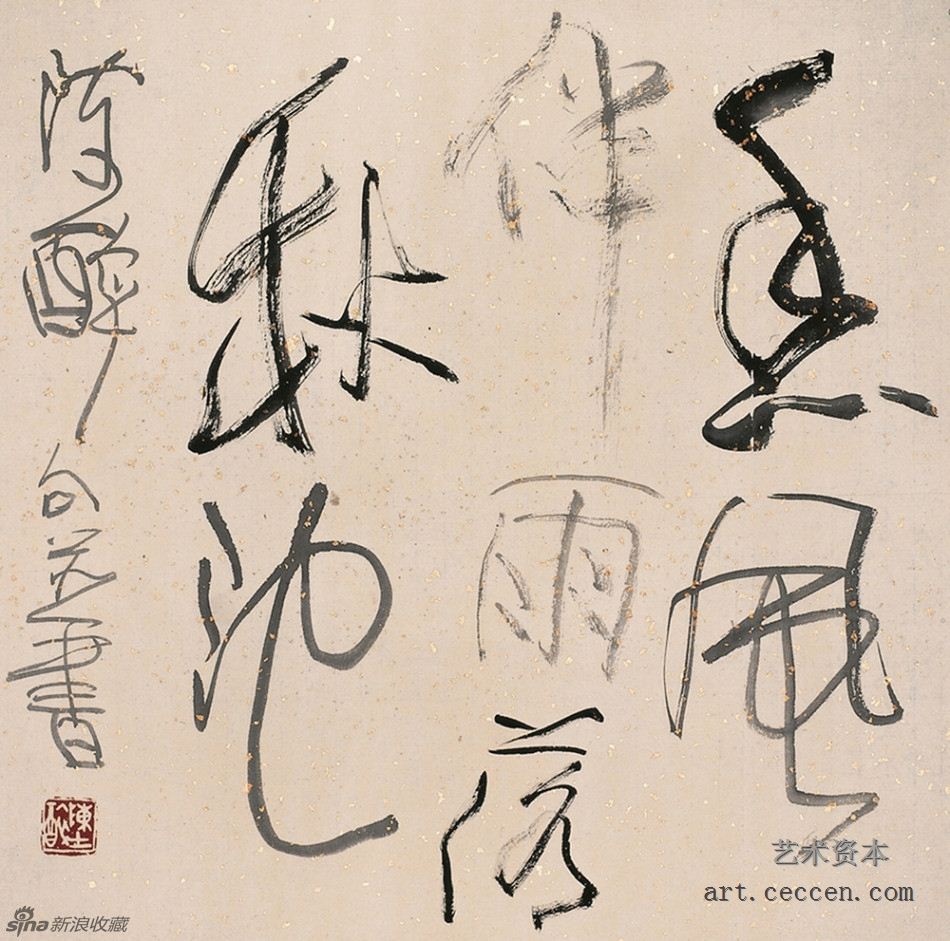 風
伴雨落
秋池
陳醉句并書
艺术资本
art.ceccen.com
sina新浪收藏